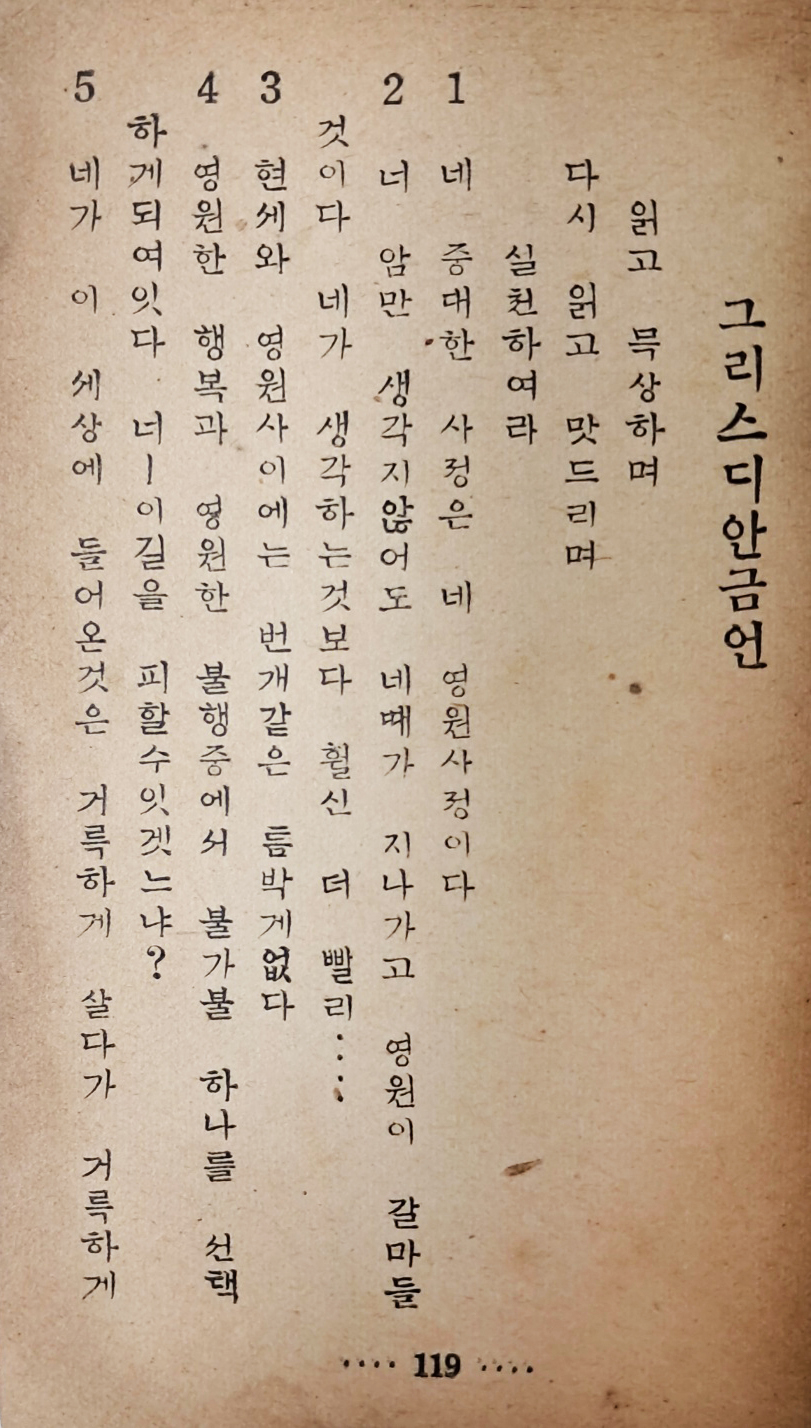 그리스디안금언
읽고 믁상하며
다시 읽고 맛드리며
실천하여라
1 네 중대한 사정은 네 영원사정이다
2 너 암만 생각지않어도 네때가 지나가고 영원이 갈마들
것이다 네가 생각하는것보다 훨신 더 빨리……
3 현세와 영원사이에는 번개같은 틈박게없다
4 영원한 행복과 영원한 불행중에서 불가불 하나를 선택
하게되여잇다 너ㅣ이길을 피할수잇겟느냐?
5 네가 이 세상에 들어온것은 거륵하게 살다가 거륵하게
···· 119 ····